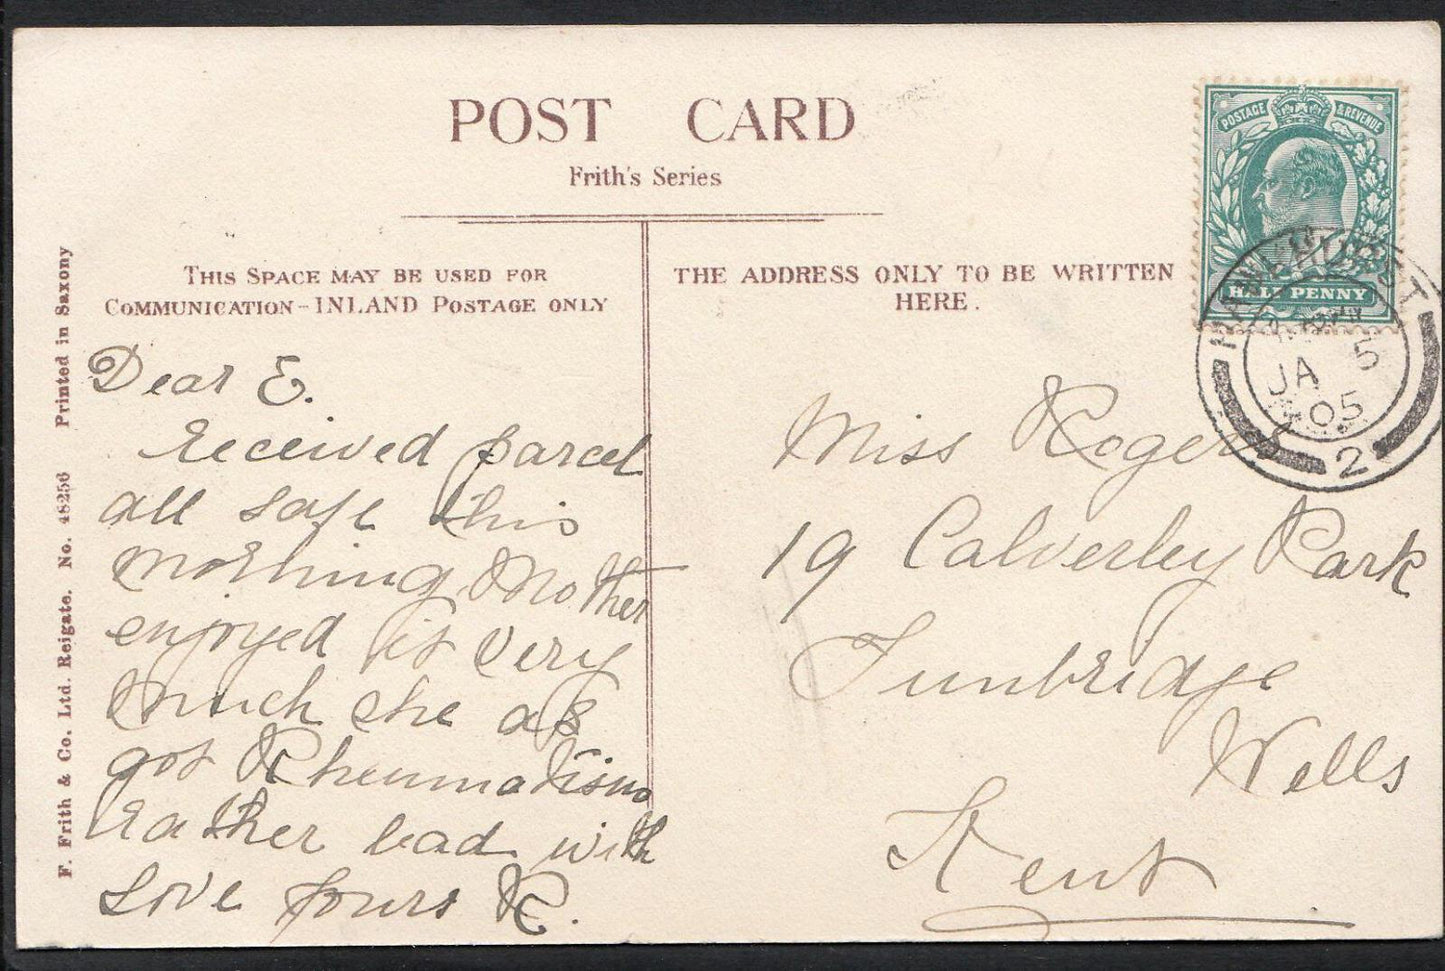 POST CARD
Frith's Series
THIS SPACE MAY BE USED FOR
COMMUNICATION - INLAND POSTAGE ONLY
THE ADDRESS ONLY TO BE WRITTEN
HERE.
POSTAGE & REVENUE
HALF PENNY
HAWKHURST
JA 5
05
2
F. Frith & Co. Ltd. Reigate. No. 48256 Printed in Saxony
Dear E.
Received parcel
all safe this
morning Mother
enjoyed it very
much she as
got Rheumatism
rather bad with
Love yours R.
Miss Rogers
19 Calverley Park
Tunbridge
Wells
Kent